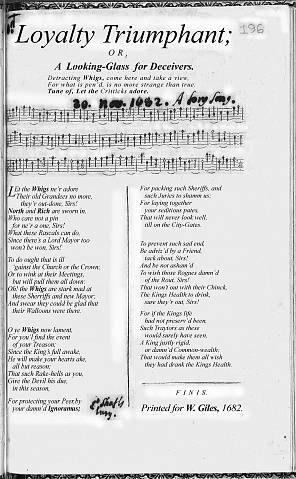 Loyalty Triumphant;
196
OR,
A Looking-Glass for Deceivers.
Detracting Whigs, come here and take a view,
For what is pen'd, is no more strange than true.
Tune of, Let the Criticks adore.
20. Nov. 1682.
LEt the Whigs ne'r adore
Their old Grandees no more,
they'r out-done, Sirs!
North and Rich are sworn in,
Who care not a pin
for ne'r a one, Sirs!
What these Rascals can do,
Since there's a Lord Mayor too
won't be won, Sirs.
To do ought that is ill
'gainst the Church or the Crown;
Or to wink at their Meetings,
but will pull them all down:
Oh! the Whigs are stark mad at
these Sherriffs and new Mayor;
And swear they could be glad that
their Walloons were there.
O ye Whigs now lament,
For you'l find the event
of your Treason;
Since the King's full awake,
He will make your hearts ake,
all but reason:
That such Rake-hells as you,
Give the Devil his due,
in this season,
For protecting your Peer, by
your damn'd Ignoramus;
For packing such Sheriffs, and
such Juries to shamm us;
For laying together
your seditious pates,
That will never look well,
till on the City-Gates.
To prevent such sad end,
Be adviz'd by a Friend,
tack about, Sirs!
And be not asham'd
To wish those Rogues damn'd
of the Rout, Sirs!
That won't out with their Chinck,
The Kings Health to drink,
sure they'r out, Sirs!
For if the Kings life
had not preserv'd been,
Such Traytors as these
would surely have seen,
A King justly rigid,
or damn'd Common-wealth;
That would make them all wish
they had drank the Kings Health.
FINIS.
Printed for W. Giles, 1682.